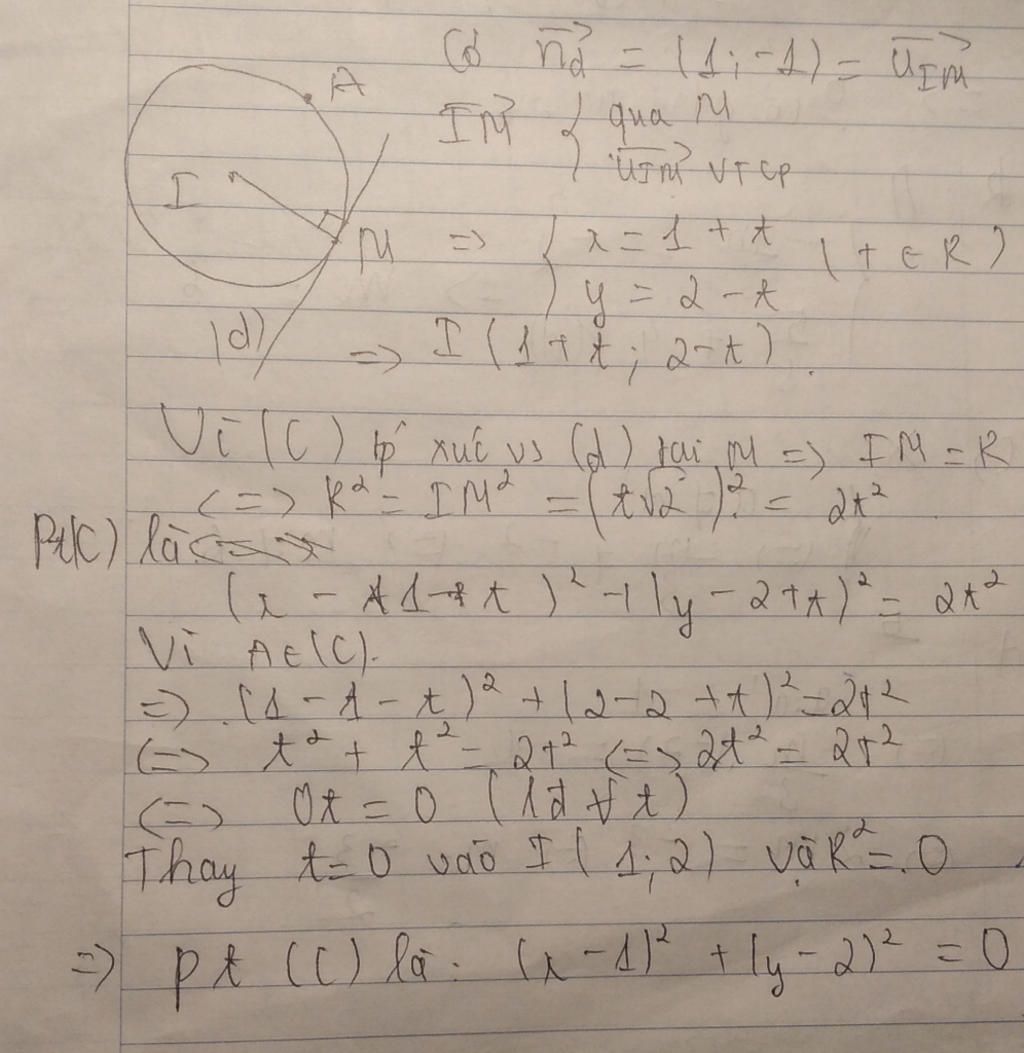 Có n_d→ = (1; -1) = u_IM→
A
IM→ { qua M
u_IM→ VTCP
I
M
=> { x = 1 + t
y = 2 - t
(t ∈ R)
(d)
=> I (1 + t; 2 - t).
Vì (C) tp xúc vs (d) tại M => IM = R
<=> R² = IM² = (t√2)² = 2t²
Pt(C) là
(x - 1 - t)² + (y - 2 + t)² = 2t²
Vì A ∈ (C).
=> (1 - 1 - t)² + (2 - 2 + t)² = 2t²
<=> t² + t² = 2t² <=> 2t² = 2t²
<=> 0t = 0 (lđ ∀ t)
Thay t = 0 vào I (1; 2) và R² = 0
=> pt (C) là: (x - 1)² + (y - 2)² = 0